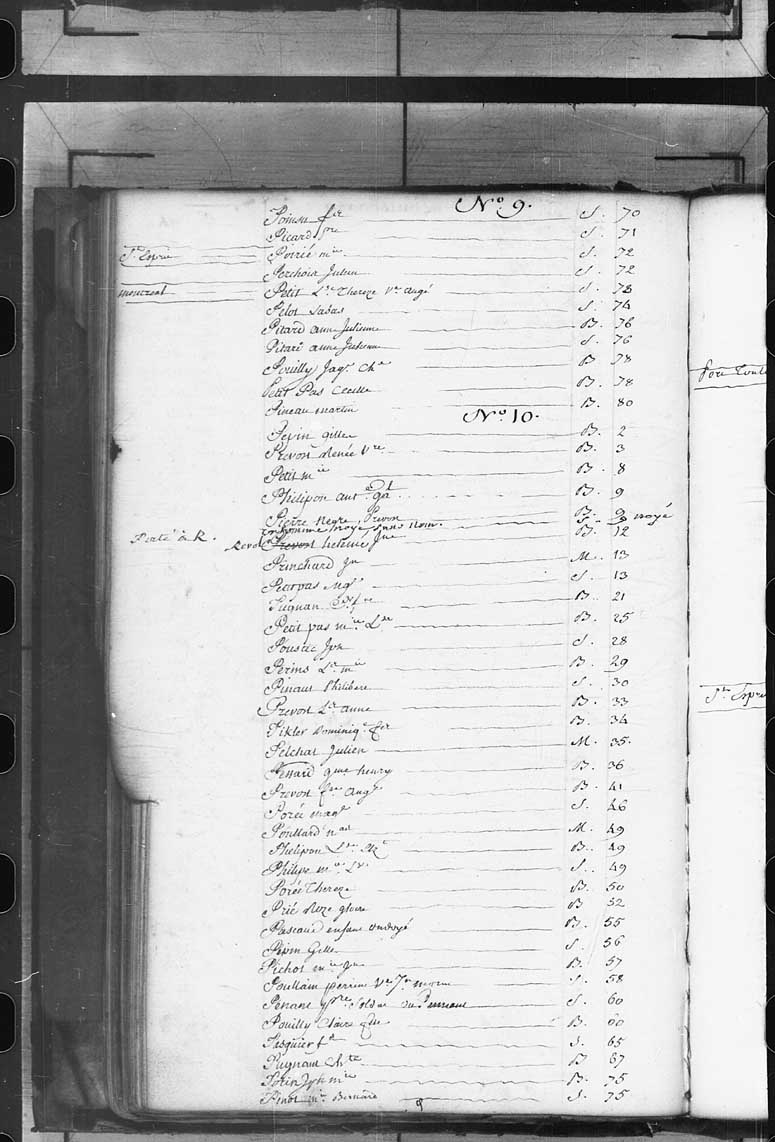 No. 9.
Poinsu fse S. 70
Picard pre S. 71
Poirié mie S. 72
St Esprit
Perchoir Julien S. 72
Petit Le Thereze Ve Augé S. 73
montreal
Pelot Sabas S. 74
Pitard anne Julienne B. 76
Pitard anne Julienne S. 76
Pouilly Jaqe Che B 78
Petit Pas Cecille B. 78
Pineau Martin B. 80
No. 10.
Pepin gilles B. 2
Prevost Renée Ve B. 3
Petit mie B. 8
Philipon ant B. 9
Pierre Negre Prevon B. 9
un homme noyé sans nom S. 9 noyé
Porté à R. Prevost helenne Jne B. 12
Princhard Jn M. 13
Petitpas S. 13
Pugnan B. 21
Petit pas mie Lse B. 25
Poussec Jph S. 28
Perins Ls mie B. 29
Pinaus Philibere S. 30
Prevost Le anne B. 33
Pikler Dominiqe B. 34
Pelchat Julien M. 35.
Penard gme henry B. 36
Prevost fse Auge B. 41
Porée mage S. 46
Poullard nas M. 49
Philipon B. 49
Philipe me S. 49
Porée Thereze B. 50
Prié Roze gloire B 52
Pascaud enfant ondoyé B. 55
Pepin Gilles S. 56
Pichot mie Jne B. 57
Poullain perrine Ve Jn morin S. 58
Penant pre Soldat S. 60
Pouilly Claire B. 60
Pasquier fs S. 65
Pugnant Chte B 67
Porin Jph mie B. 75
Pinot me Bernard S. 75
Port Toulo
St Esprit